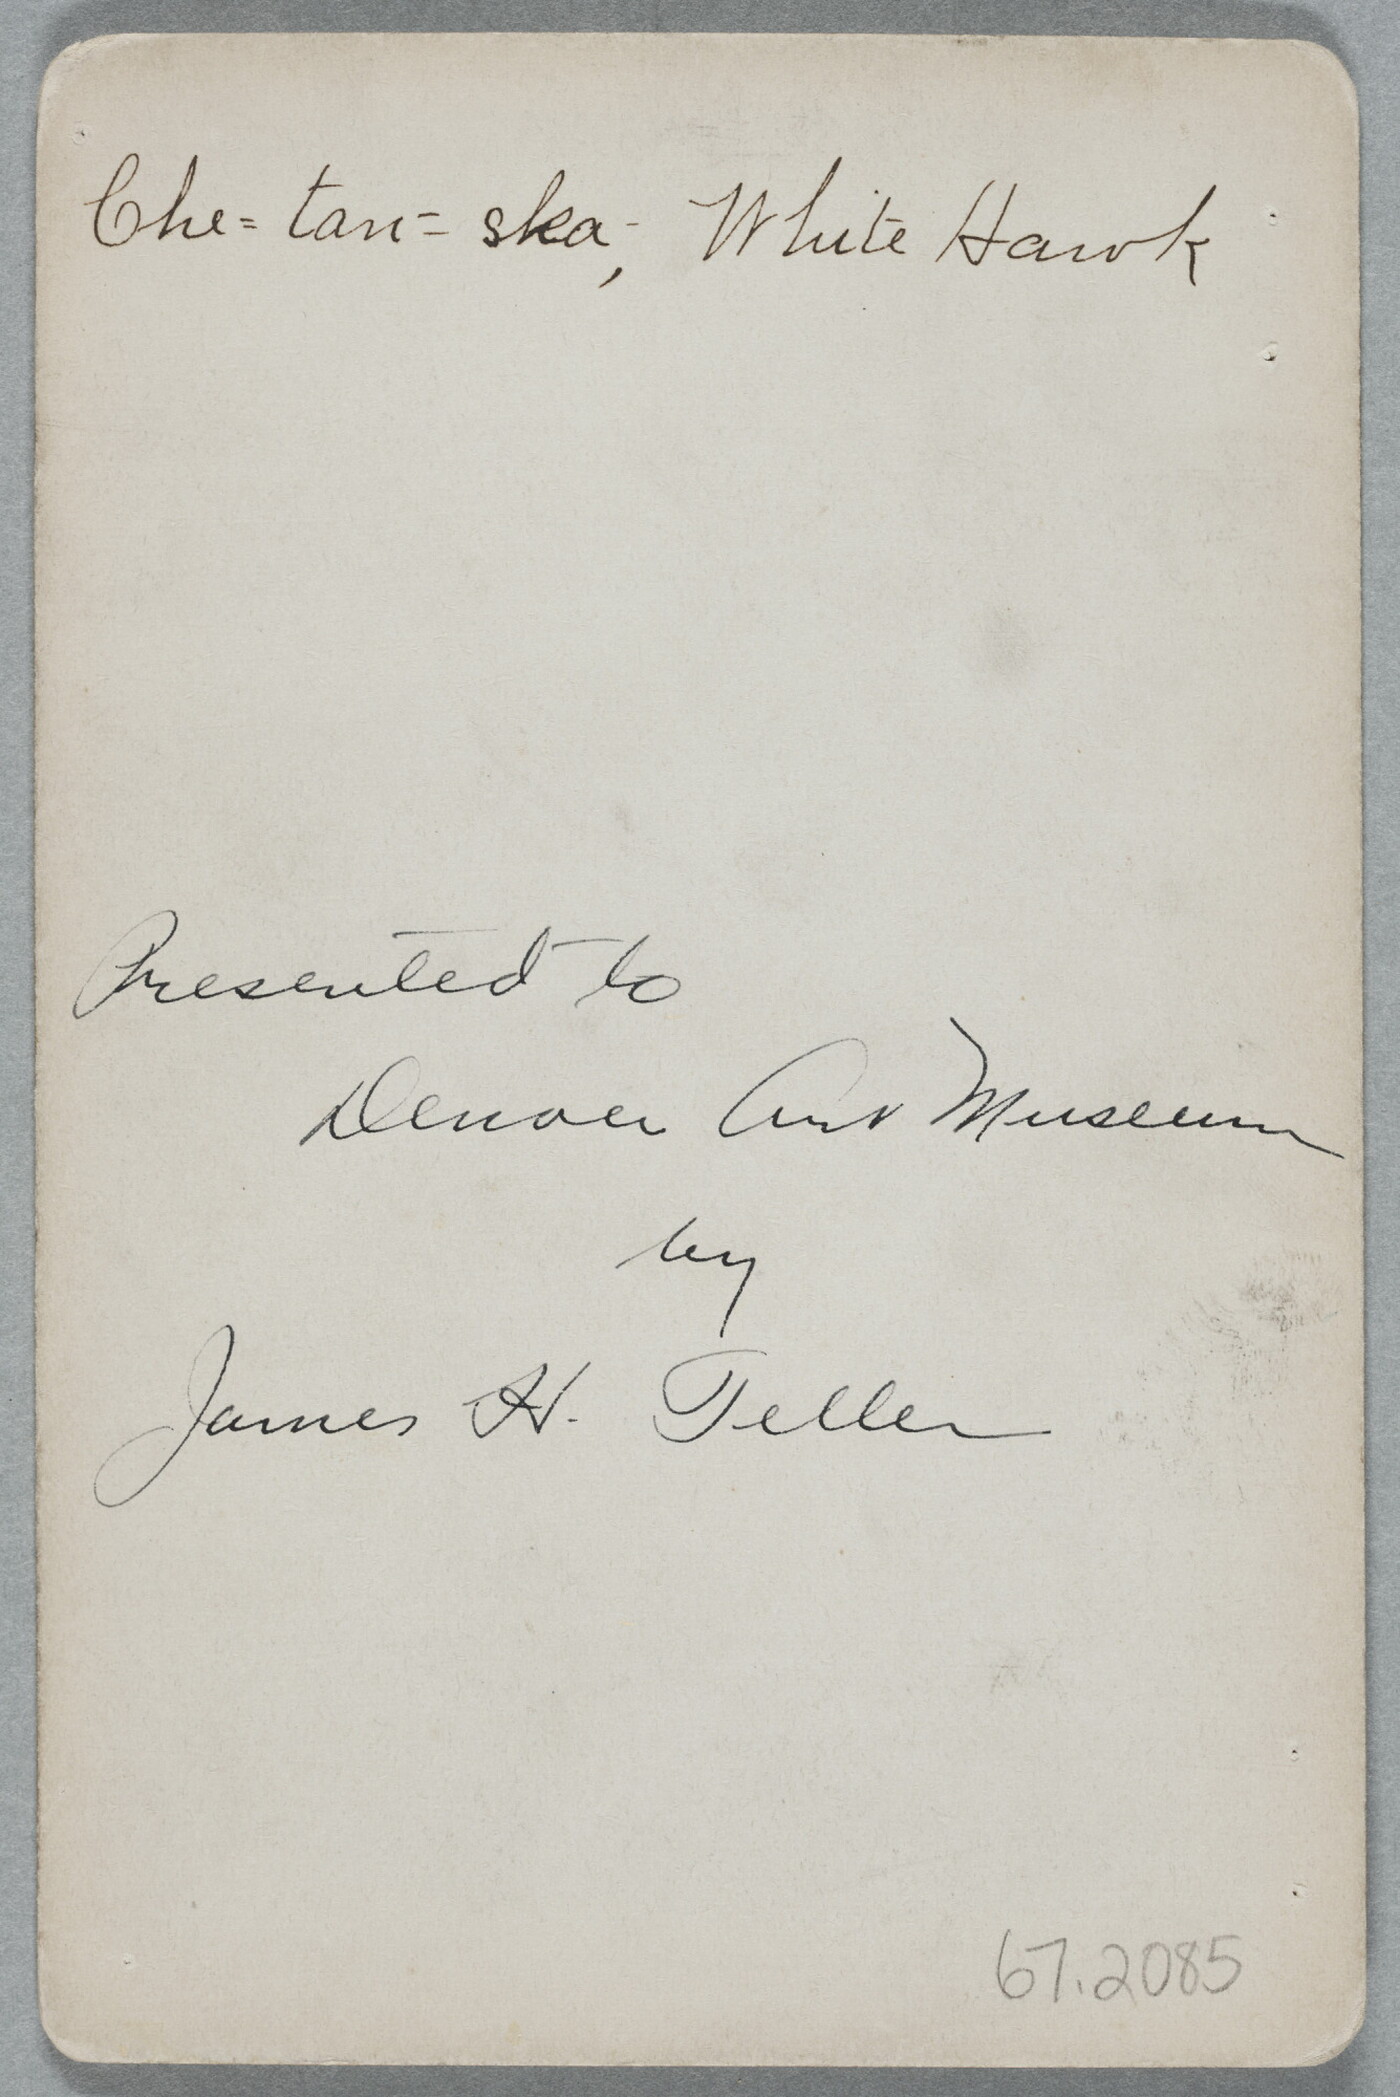 Che=tan=ska, White Hawk
Presented to
Denver Art Museum
by
James H. Teller
67.2085